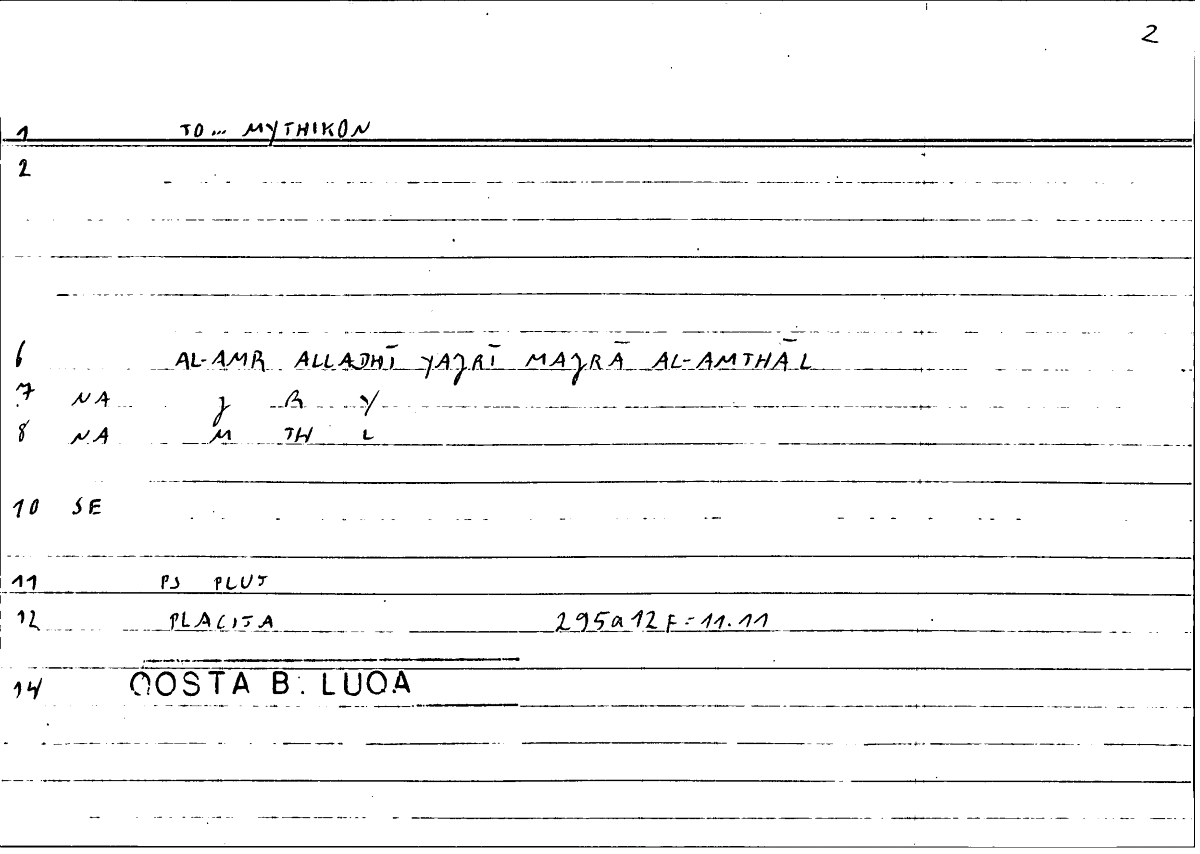 2
1 TO... MYTHIKON
2
6 AL-AMR ALLADHĪ YAJRĪ MAJRĀ AL-AMTHĀL
7 NA J R Y
8 NA M TH L
10 SE
11 PS PLUT
12 PLACITA 295a12 F = 11.11
14 QOSTA B. LUQA